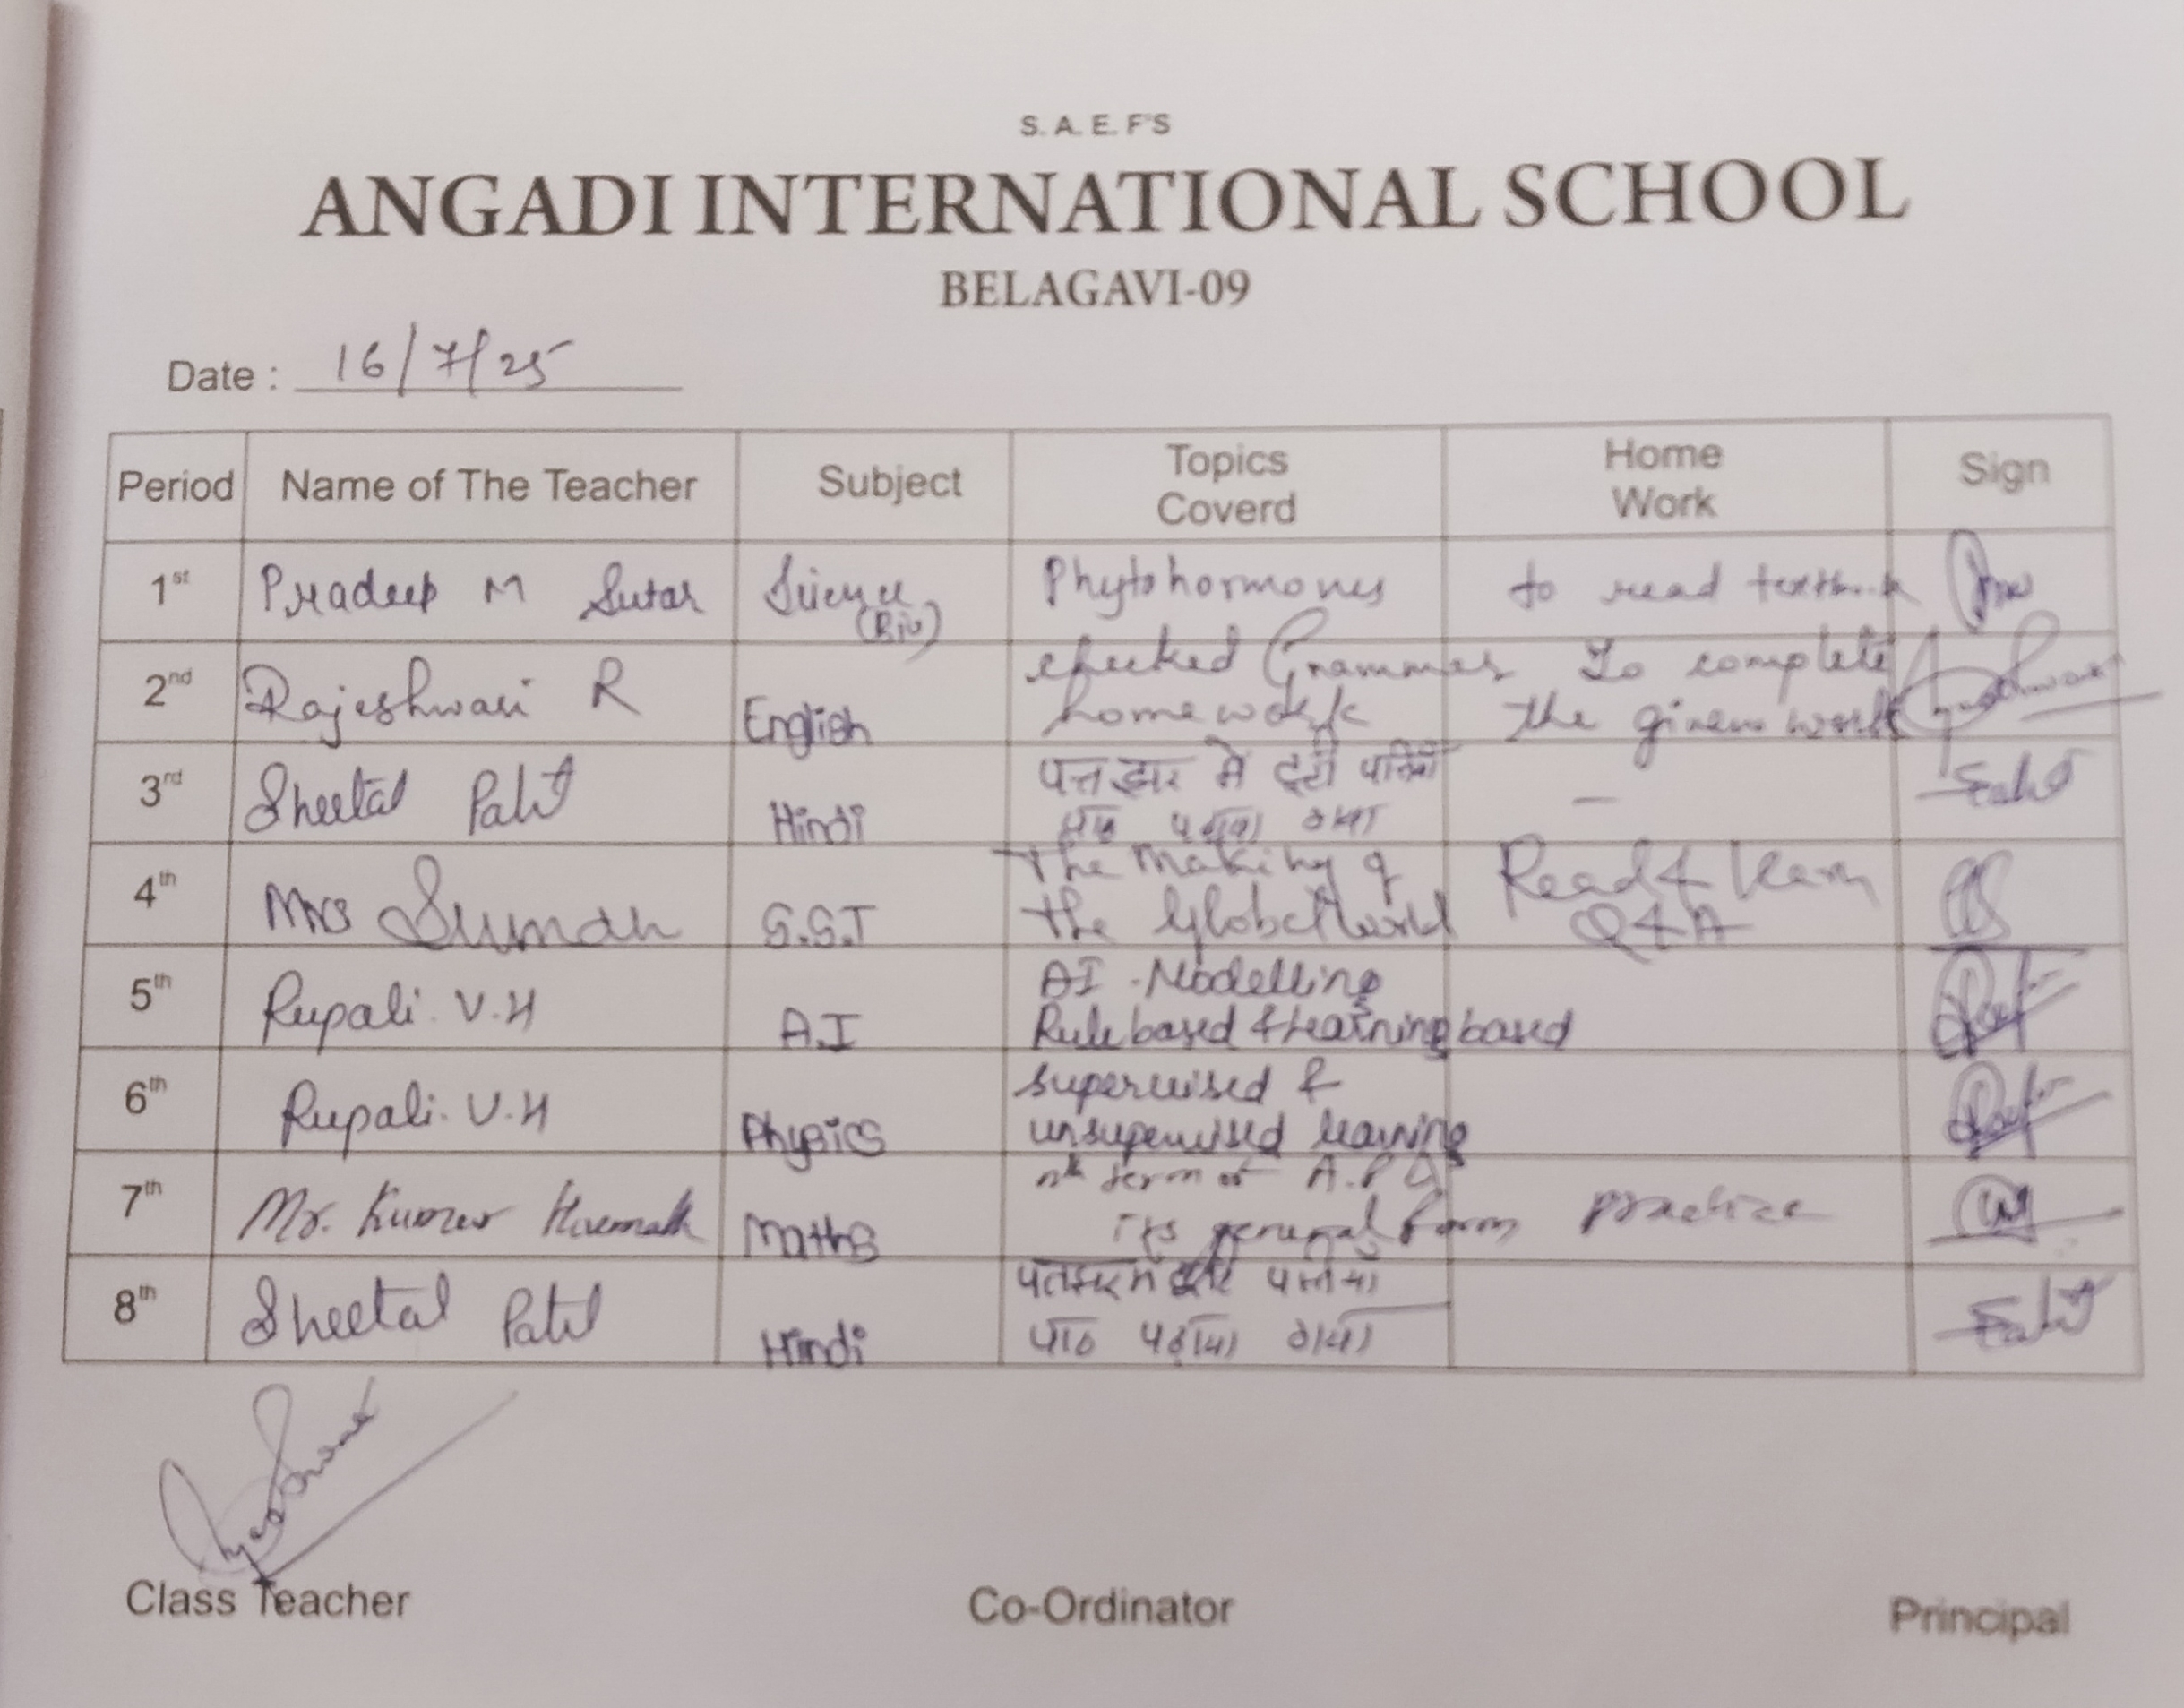 S. A. E. F'S
ANGADI INTERNATIONAL SCHOOL
BELAGAVI-09
Date : 16/7/25
Period Name of The Teacher Subject Topics Coverd Home Work Sign
1st Pradeep M Sutar Science (Bio) Phytohormones to read textbook
2nd Rajeshwari R English checked Grammar homework To complete the given work
3rd Sheetal Patil Hindi में टूटी —
4th Mrs Suman S.S.T The Making of the Global World Read & learn Q & A
5th Rupali. V.H A.I AI - Modelling Rule based & Learning based
6th Rupali. V.H Physics supervised & unsupervised learning
7th Mr. Kumar Physics nth term of A.P & its general form practice
8th Sheetal Patil Hindi पाठ पढ़ाया गया
Class Teacher Co-Ordinator Principal